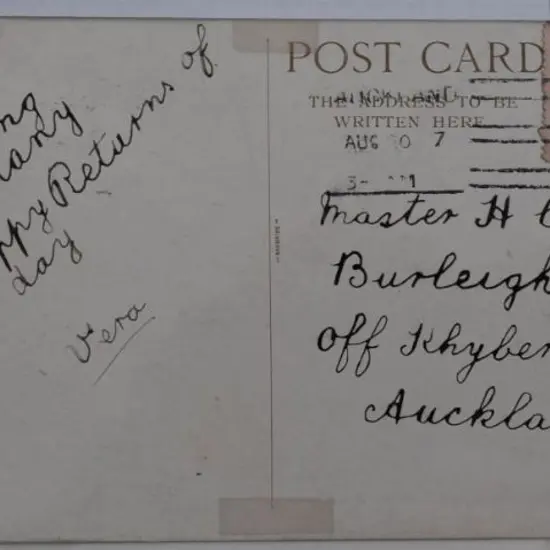 ng
many
ppy Returns of
day
Vera
POST CARD
AUCKLAND
THE ADDRESS TO BE
WRITTEN HERE
AUG 30 7
Master H
Burleigh
off Khyber
Auckla